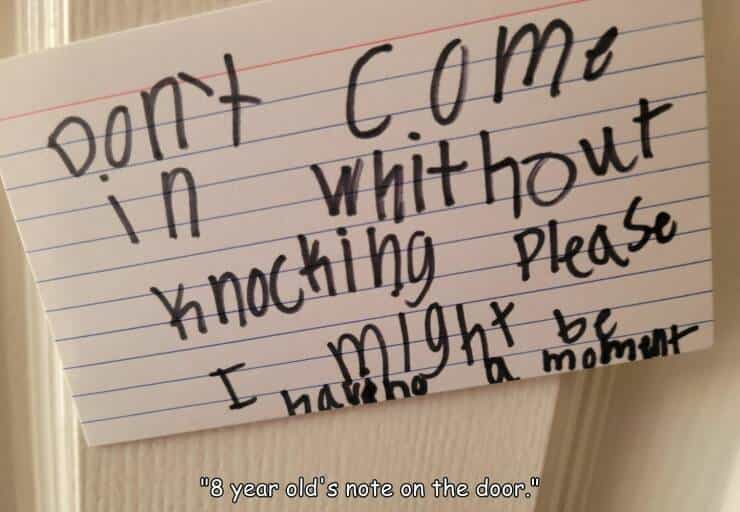 DON't come
in whithout
knocking Please
I might be
haveho a moment
"8 year old's note on the door."